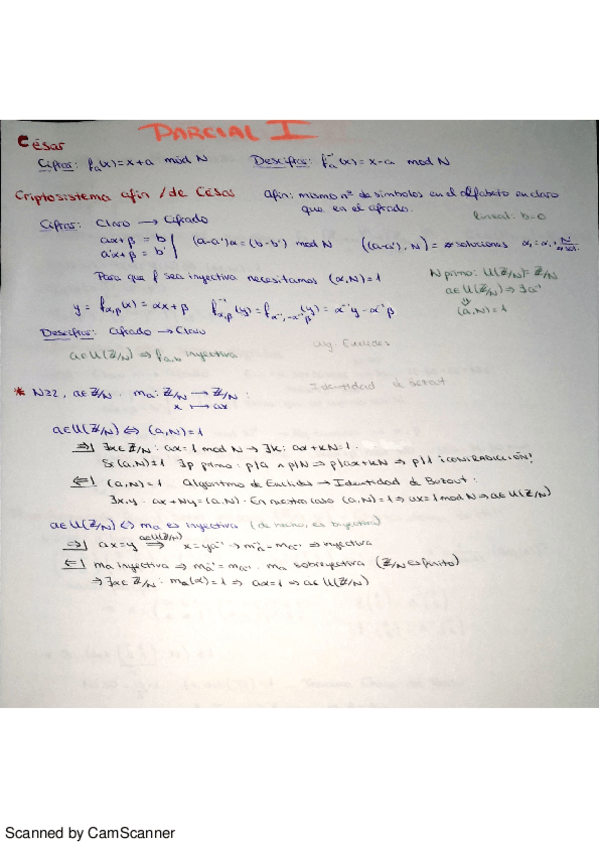 PARCIAL I
César
Cifrar: fₐ(x)=x+a mód N   Descifrar: fₐ⁻¹(x)=x-a mod N
Criptosistema afín / de César   Afín: mismo nº de símbolos en el alfabeto en claro
que en el cifrado.   lineal: b=0
Cifrar: Claro → Cifrado
aα+β = b   (a-a')α=(b-b') mod N   ((a-a'), N) = # soluciones
a'α+β = b'
Para que f sea inyectiva necesitamos (α,N)=1
a∈U(ℤ/N) ⇒ ∃a⁻¹
(a,N)=1
y = f_{α,β}(x) = αx+β   f⁻¹_{α,β}(y) = f_{α⁻¹,-α⁻¹β}(y) = α⁻¹y-α⁻¹β
Descifrar: Cifrado → Claro   alg. Euclides
a∈U(ℤ/N) ⇒ f_{a,b} inyectiva
Identidad de Bézout
* N≥2, a∈ℤ/N. mₐ: ℤ/N → ℤ/N :
x ↦ ax
a∈U(ℤ/N) ⇔ (a,N)=1
⇒| ∃x∈ℤ/N : ax=1 mod N → ∃k: ax+kN=1.
Si (a,N)≠1 ∃p primo: p|a ∧ p|N ⇒ p|ax+kN ⇒ p|1 ¡CONTRADICCIÓN!
⇐| (a,N)=1 Algoritmo de Euclides → Identidad de Bezout:
∃x,y: ax+Ny=(a,N). En nuestro caso (a,N)=1 ⇒ ax=1 mod N ⇒ a∈U(ℤ/N)
a∈U(ℤ/N) ⇔ mₐ es inyectiva (de hecho, es biyectiva)
⇒| ax=y ⇒ a∈U(ℤ/N) x=ya⁻¹ → mₐ⁻¹=m_{a⁻¹} ⇒ inyectiva
⇐| mₐ inyectiva ⇒ mₐ⁻¹=m_{a⁻¹}. mₐ sobreyectiva (ℤ/N es finito)
⇒ ∃x∈ℤ/N : mₐ(x)=1 ⇒ ax=1 ⇒ a∈U(ℤ/N)
Scanned by CamScanner